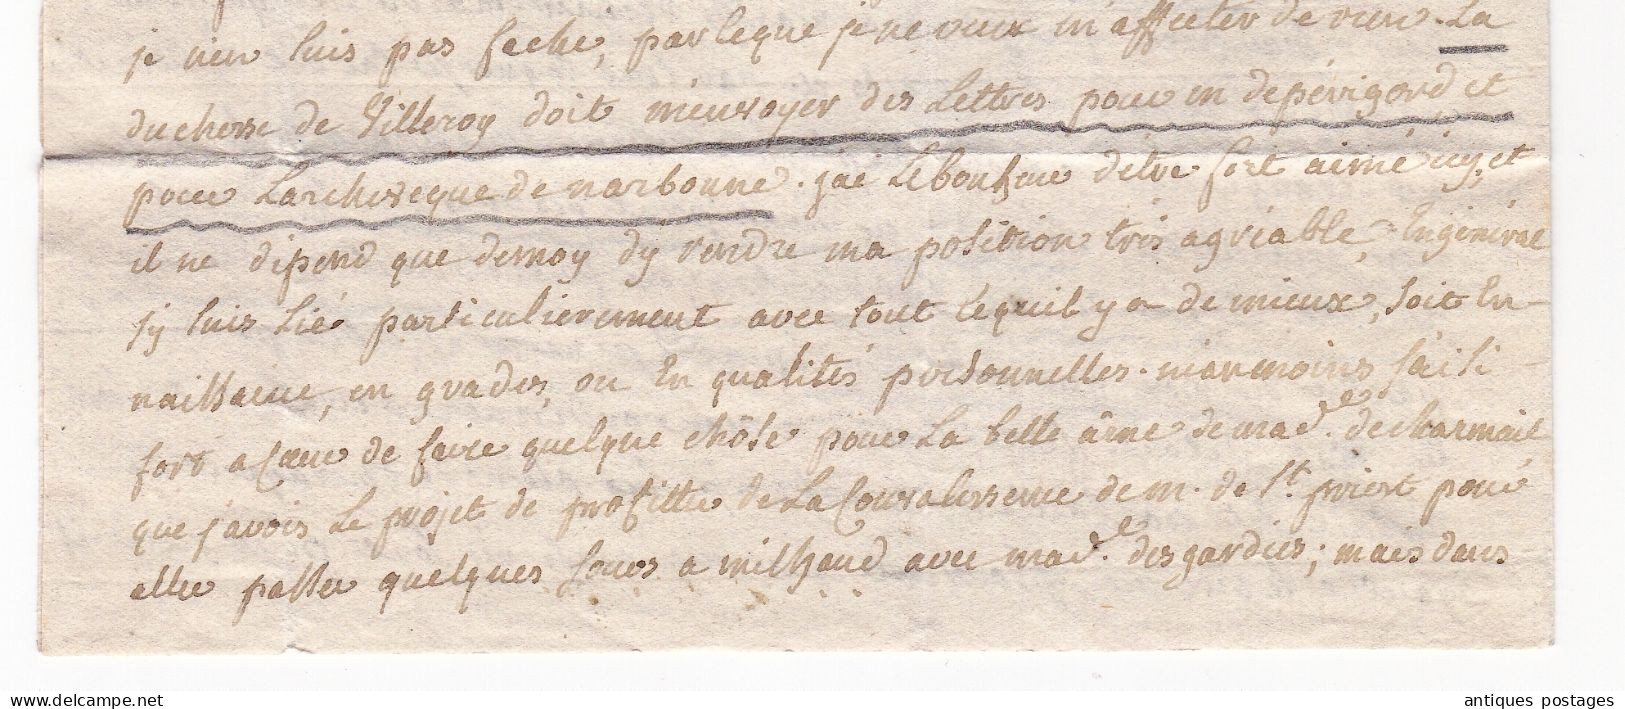 je n'en suis pas faché, parceque je ne veux m'affecter de rien. La
duchesse de Villeroy doit m'envoyer des Lettres pour m de périgord et
pour L'archeveque de narbonne. j'ai Le bonheur d'etre fort aimé icy, et
il ne dépend que de moy d'y rendre ma position très agréable, En général
j'y suis Lié particulierement avec tout ce quil y a de mieux, soit En
naissance, en grades, ou En qualités personnelles. néanmoins j'ai si
fort a Cœur de faire quelque chôse pour La belle âme de mad.e de charmeil
que j'avois Le projet de profitter de La Convalessence de m. de St. priest pour
aller passer quelques jours a milhaud avec mad.e des gardies; mais dans
www.delcampe.net
antiques postages